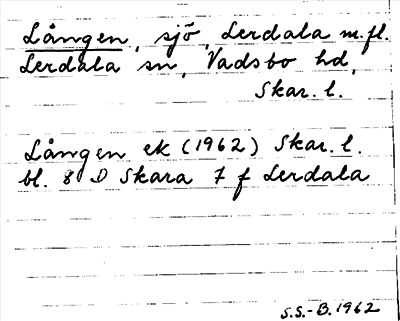 Lången, sjö, Lerdala m.fl.
Lerdala sn, Vadsbo hd,
Skar. l.
Lången ek (1962) Skar. l.
bl. 8 D Skara 7 f Lerdala
S.S.-B. 1962